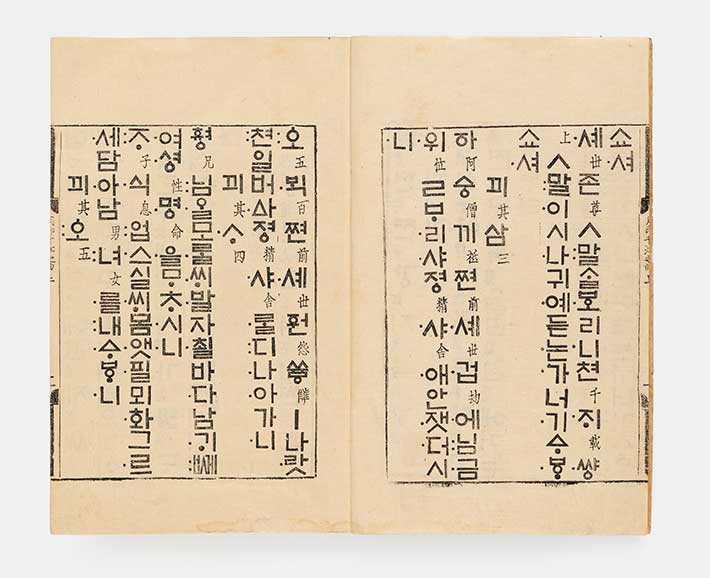 쇼셔
셰世존尊ㅅ말ᄉᆞᆯᄫᅩ리니쳔千ᄌᆡ載쌰ᇰ
上ㅅ말이시나귀예듣논가너기ᅀᆞᄫᆞ
쇼셔
끠其삼三
하阿스ᇰ僧끼祇쪈前셰世겁劫에님금
위位ㄹᄇᆞ리샤져ᇰ精샤舍애안잿더시
니
오五ᄇᆡᆨ百쪈前셰世ᅙᅯᆫ怨쓩讎ㅣ나랏
쳔일버ᅀᅡ져ᇰ精샤舍ᄅᆞᆯ디나아가니
끠其ᄉᆞ四
혀ᇰ兄님ᄋᆞᆯ모ᄅᆞᆯᄊᆡ발자쵤바다남기ᄢᅦ
여셔ᇰ性며ᇰ命을ᄆᆞᄎᆞ시니
ᄌᆞ子식息업스실ᄊᆡ몸앳필뫼화그르
세담아남男녀女를내ᅀᆞᄫᆞ니
끠其오五